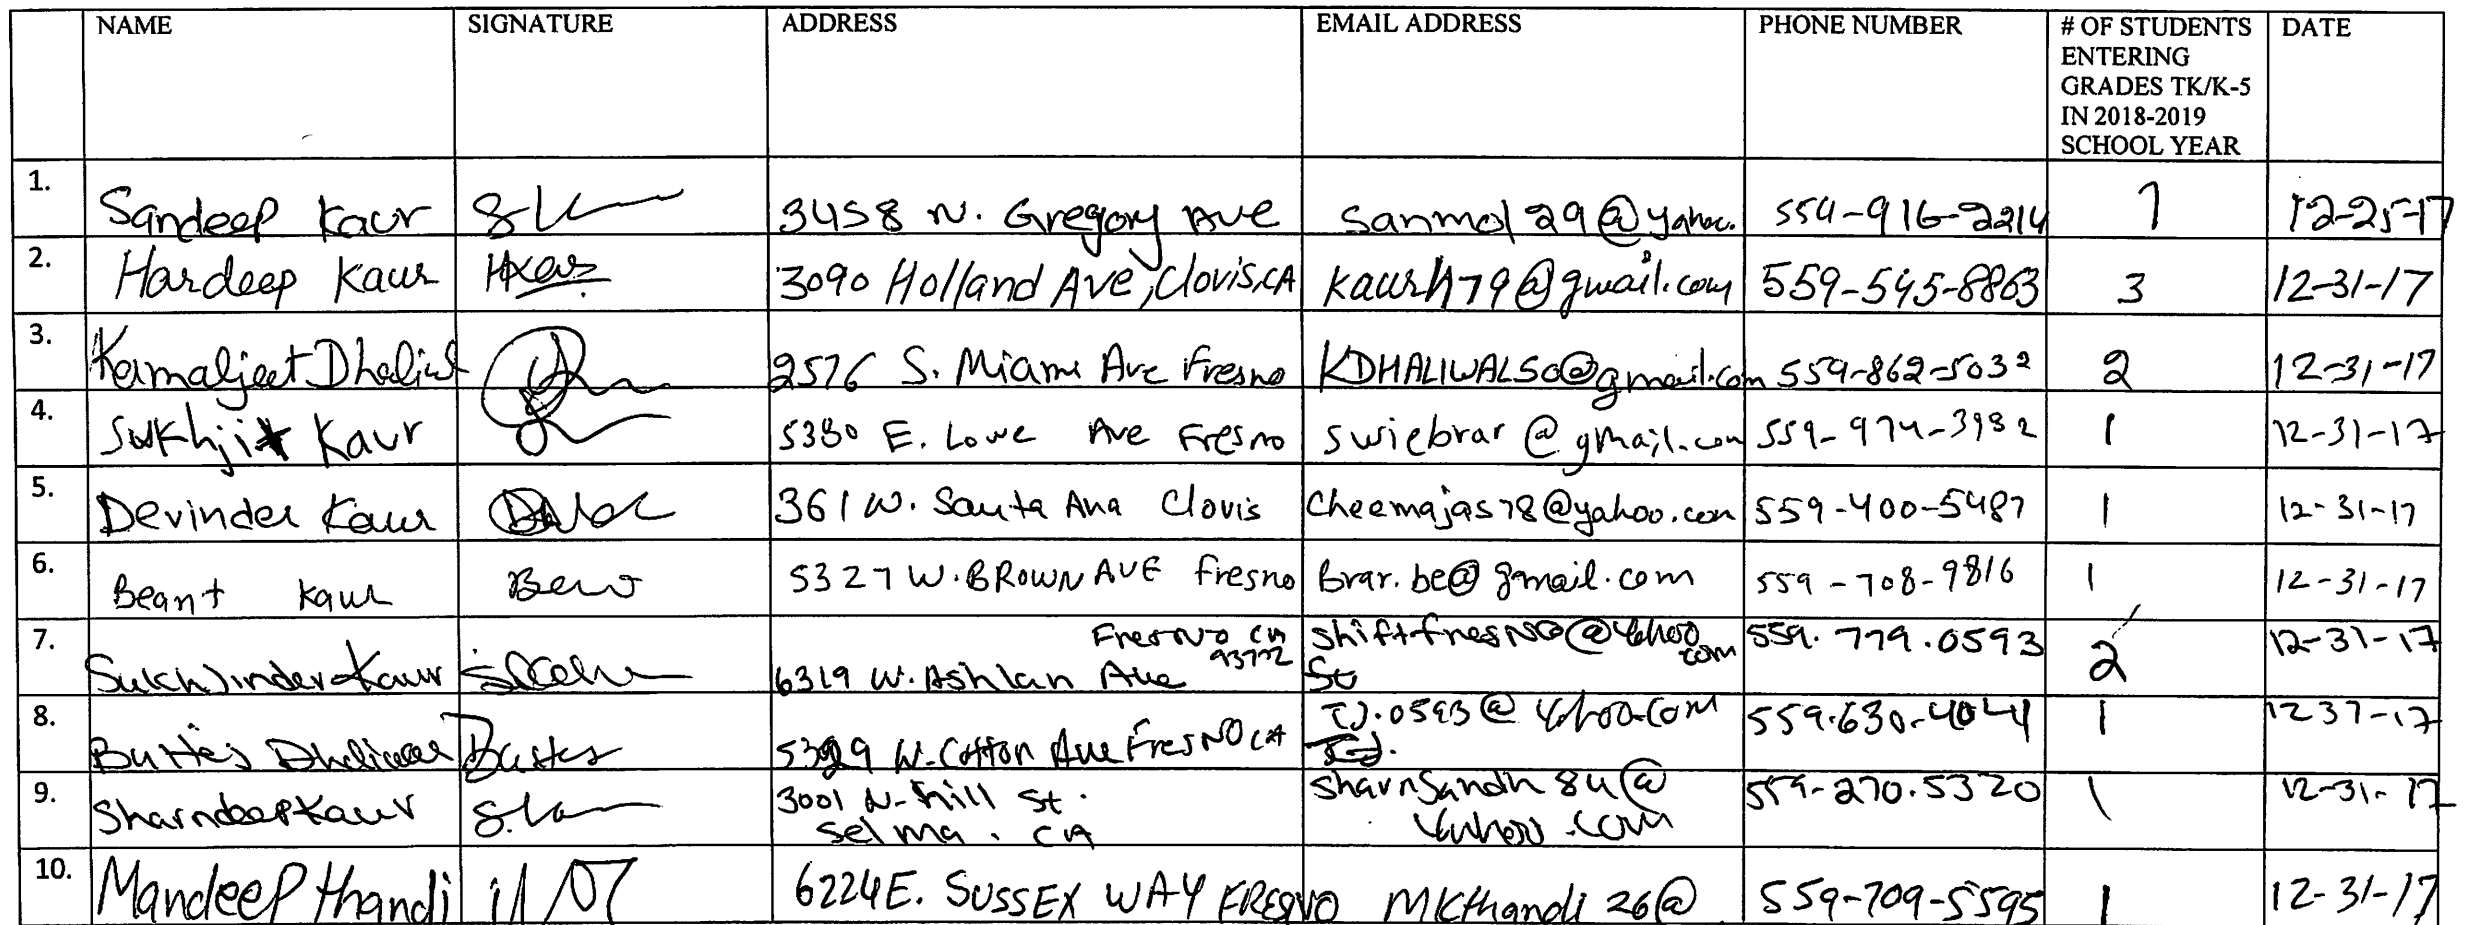 NAME SIGNATURE ADDRESS EMAIL ADDRESS PHONE NUMBER # OF STUDENTS DATE
ENTERING
GRADES TK/K-5
IN 2018-2019
SCHOOL YEAR
1. Sandeep Kaur 3458 N. Gregory Ave sanmol29@yahoo. 559-916-2214 1 12-25-17
2. Hardeep Kaur HKaur 3090 Holland Ave, Clovis, CA kaurh79@gmail.com 559-545-8863 3 12-31-17
3. Kamaljeet 2576 S. Miami Ave Fresno KDHALIWAL50@gmail.com 559-862-5032 2 12-31-17
4. Sukhjit Kaur 5380 E. Lowe Ave Fresno swiebrar@gmail.com 559-974-3982 1 12-31-17
5. Devinder Kaur 361 W. Santa Ana Clovis Cheemajas78@yahoo.com 559-400-5487 1 12-31-17
6. Beant Kaur 5327 W. BROWN AVE fresno brar.be@gmail.com 559-708-9816 1 12-31-17
7. Fresno CA shiftfresno@yahoo 559.779.0593 2 12-31-17
93722 com
Kaur 6319 W. Ashlan Ave
8. 0593@yahoo.com 559.630.4044 1
Ave Fresno CA
9. Sharndeep Kaur 3001 N- hill St. 84@ 559-270.5320 1 12-31-17
Selma. CA yahoo.com
10. Mandeep Thandi 6224 E. SUSSEX WAY FRESNO MKthandi26@ 559-709-5595 1 12-31-17